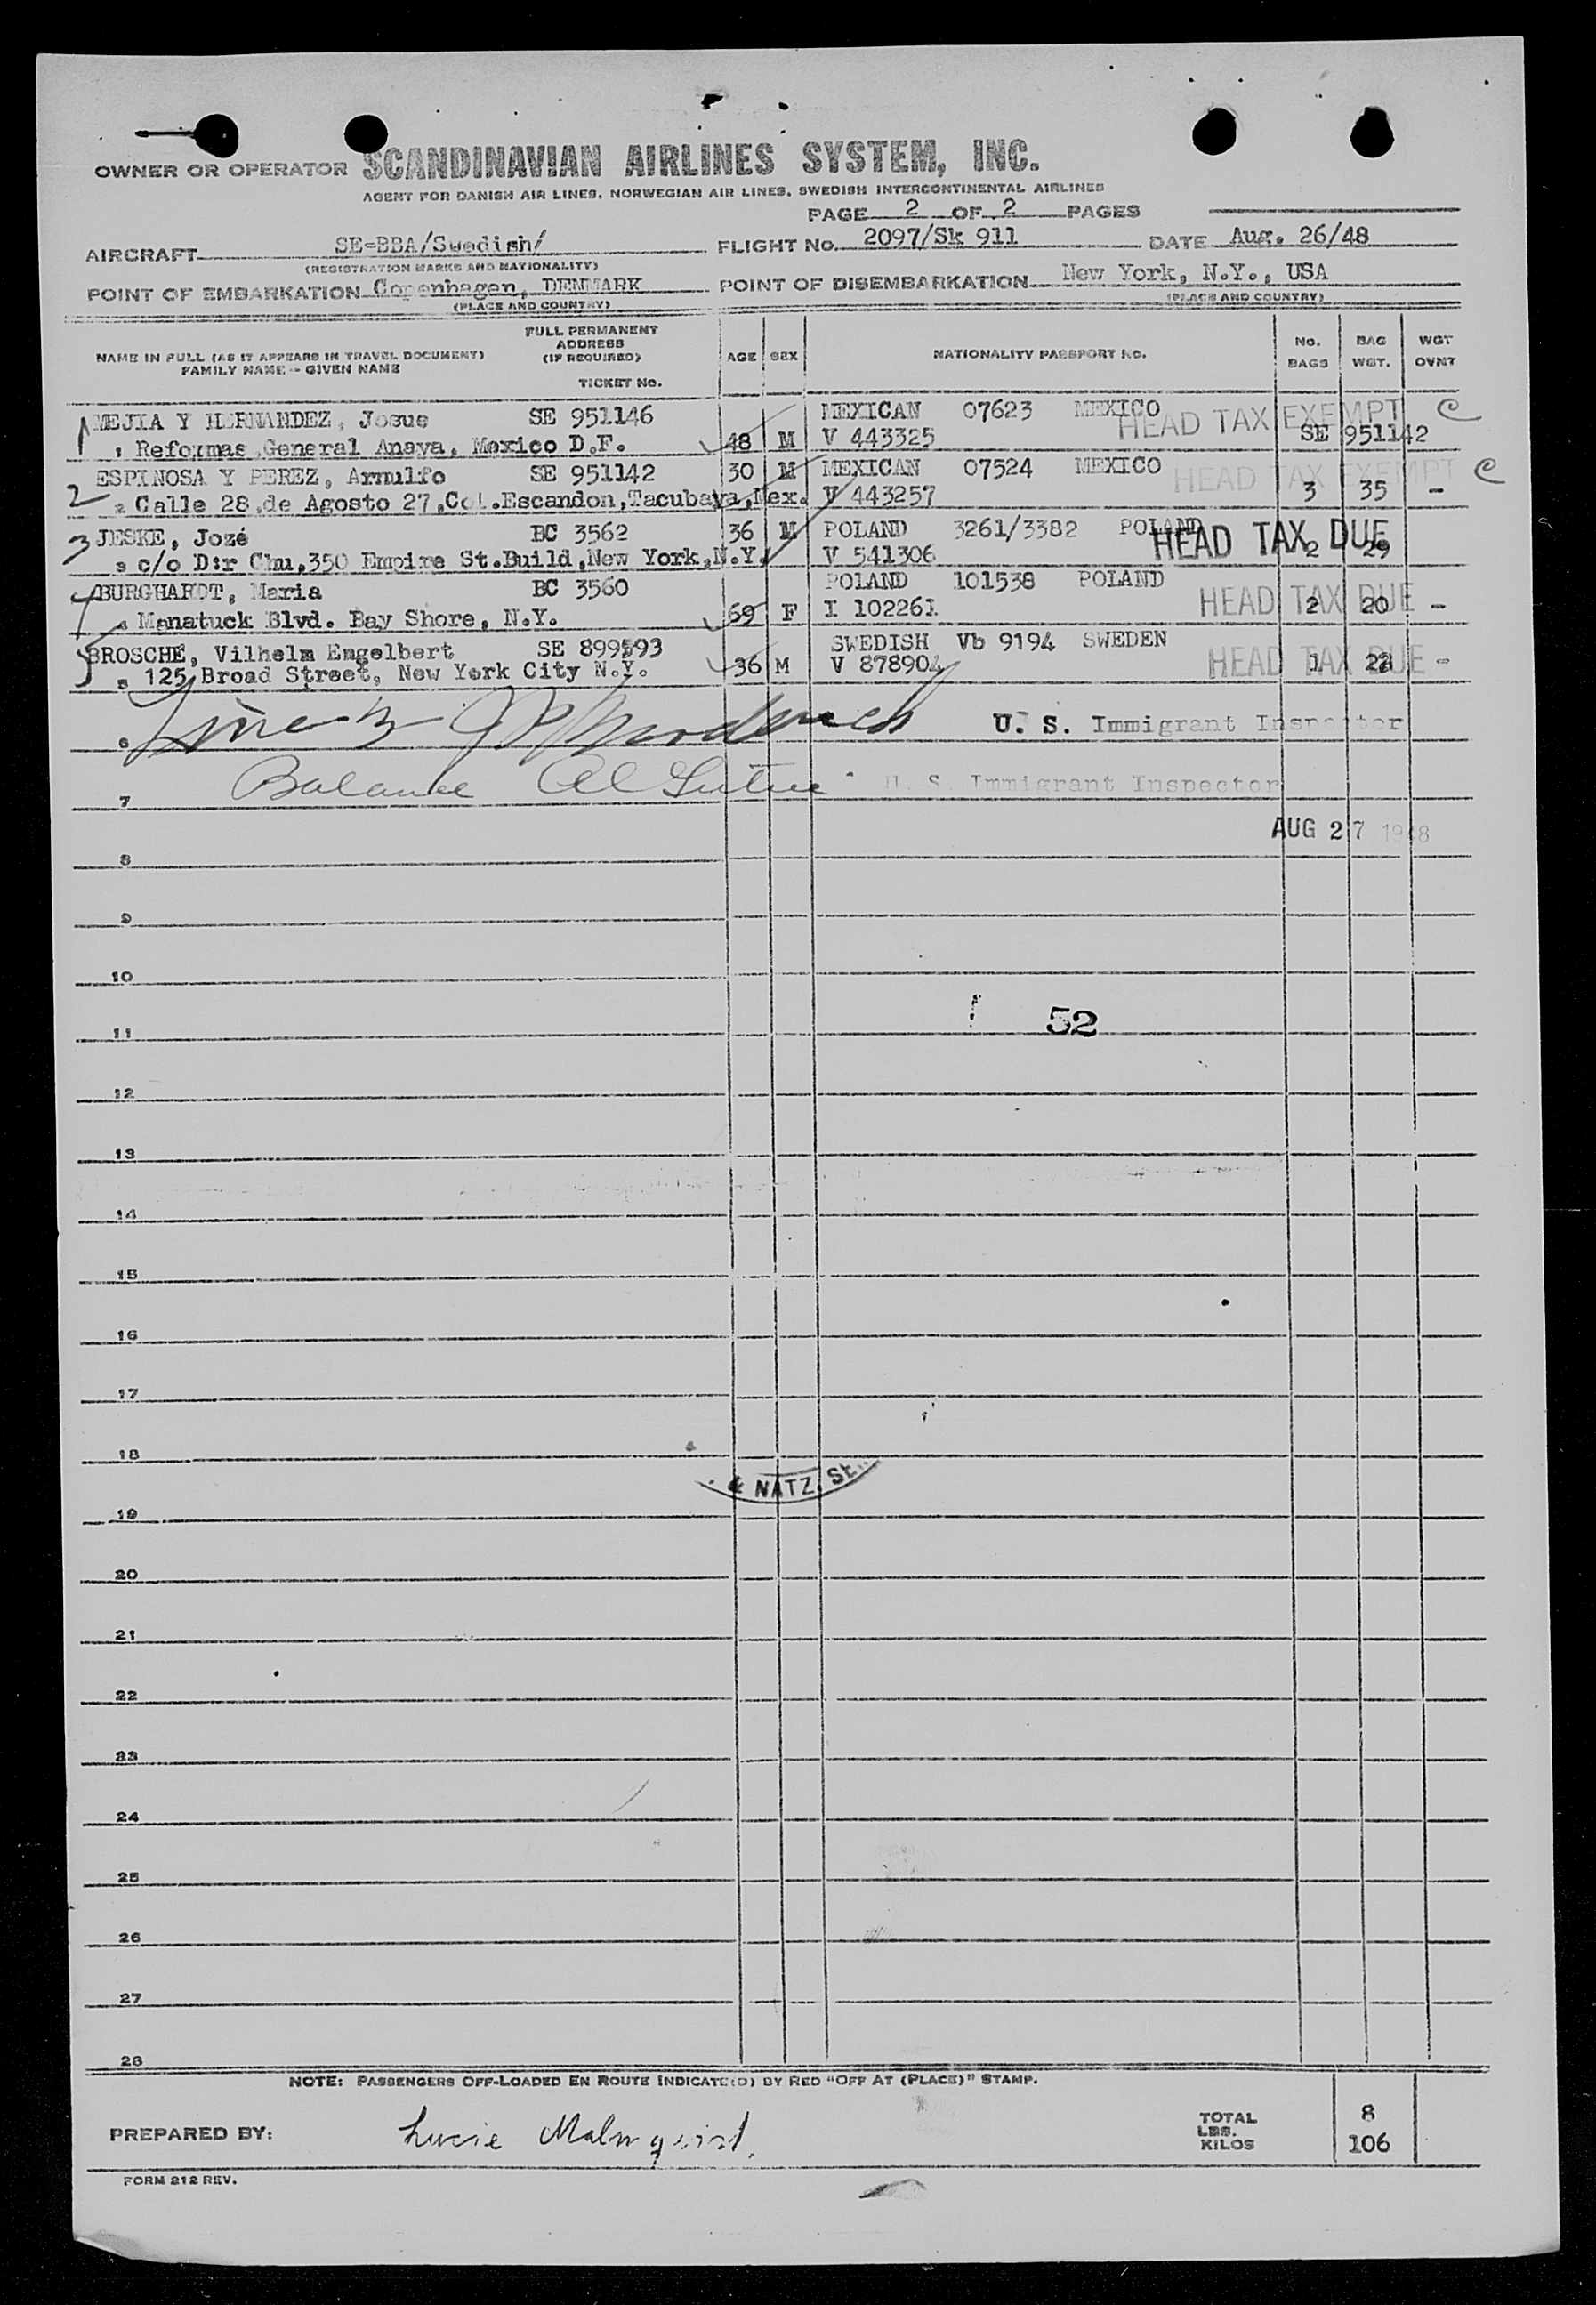 OWNER OR OPERATOR SCANDINAVIAN AIRLINES SYSTEM, INC.
AGENT FOR DANISH AIR LINES, NORWEGIAN AIR LINES, SWEDISH INTERCONTINENTAL AIRLINES
PAGE 2 OF 2 PAGES
AIRCRAFT SE-BBA/Swedish/ FLIGHT No. 2097/Sk 911 DATE Aug. 26/48
(REGISTRATION MARKS AND NATIONALITY)
POINT OF EMBARKATION Copenhagen, DENMARK POINT OF DISEMBARKATION New York, N.Y., USA
(PLACE AND COUNTRY) (PLACE AND COUNTRY)
NAME IN FULL (AS IT APPEARS IN TRAVEL DOCUMENT) FAMILY NAME - GIVEN NAME FULL PERMANENT ADDRESS (IF REQUIRED) TICKET No. AGE SEX NATIONALITY PASSPORT No. No. BAGS BAG WGT. WGT OVNT
1 MEJIA Y HERNANDEZ, Josue SE 951146 MEXICAN 07623 MEXICO HEAD TAX EXEMPT C
Reformas General Anaya, Mexico D.F. 48 M V 443325 SE 951142
2 ESPINOSA Y PEREZ, Arnulfo SE 951142 30 M MEXICAN 07524 MEXICO HEAD TAX EXEMPT C
2 Calle 28 de Agosto 27, Col. Escandon, Tacubaya, Mex. V 443257 3 35 -
3 JESKE, Jozé BC 3562 36 M POLAND 3261/3382 POLAND HEAD TAX DUE
3 c/o D:r Chu, 350 Empire St. Build, New York, N.Y. V 541306 2 29
4 BURGHARDT, Maria BC 3560 POLAND 101538 POLAND HEAD TAX DUE
4 Manatuck Blvd. Bay Shore, N.Y. 69 F I 102261 2 20 -
5 BROSCHÉ, Vilhelm Engelbert SE 899593 SWEDISH Vb 9194 SWEDEN HEAD TAX DUE
5 125 Broad Street, New York City N.Y. 36 M V 878904 1 22 -
6 U. S. Immigrant Inspector
7 Balance U. S. Immigrant Inspector
AUG 27 1948
8
9
10
52
11
12
13
14
15
16
17
18
& NATZ. St.
19
20
21
22
23
24
25
26
27
28
NOTE: PASSENGERS OFF-LOADED EN ROUTE INDICATE(D) BY RED "OFF AT (PLACE)" STAMP.
PREPARED BY: Lucie Malmqvist. TOTAL 8
LBS.
KILOS 106
FORM 212 REV.